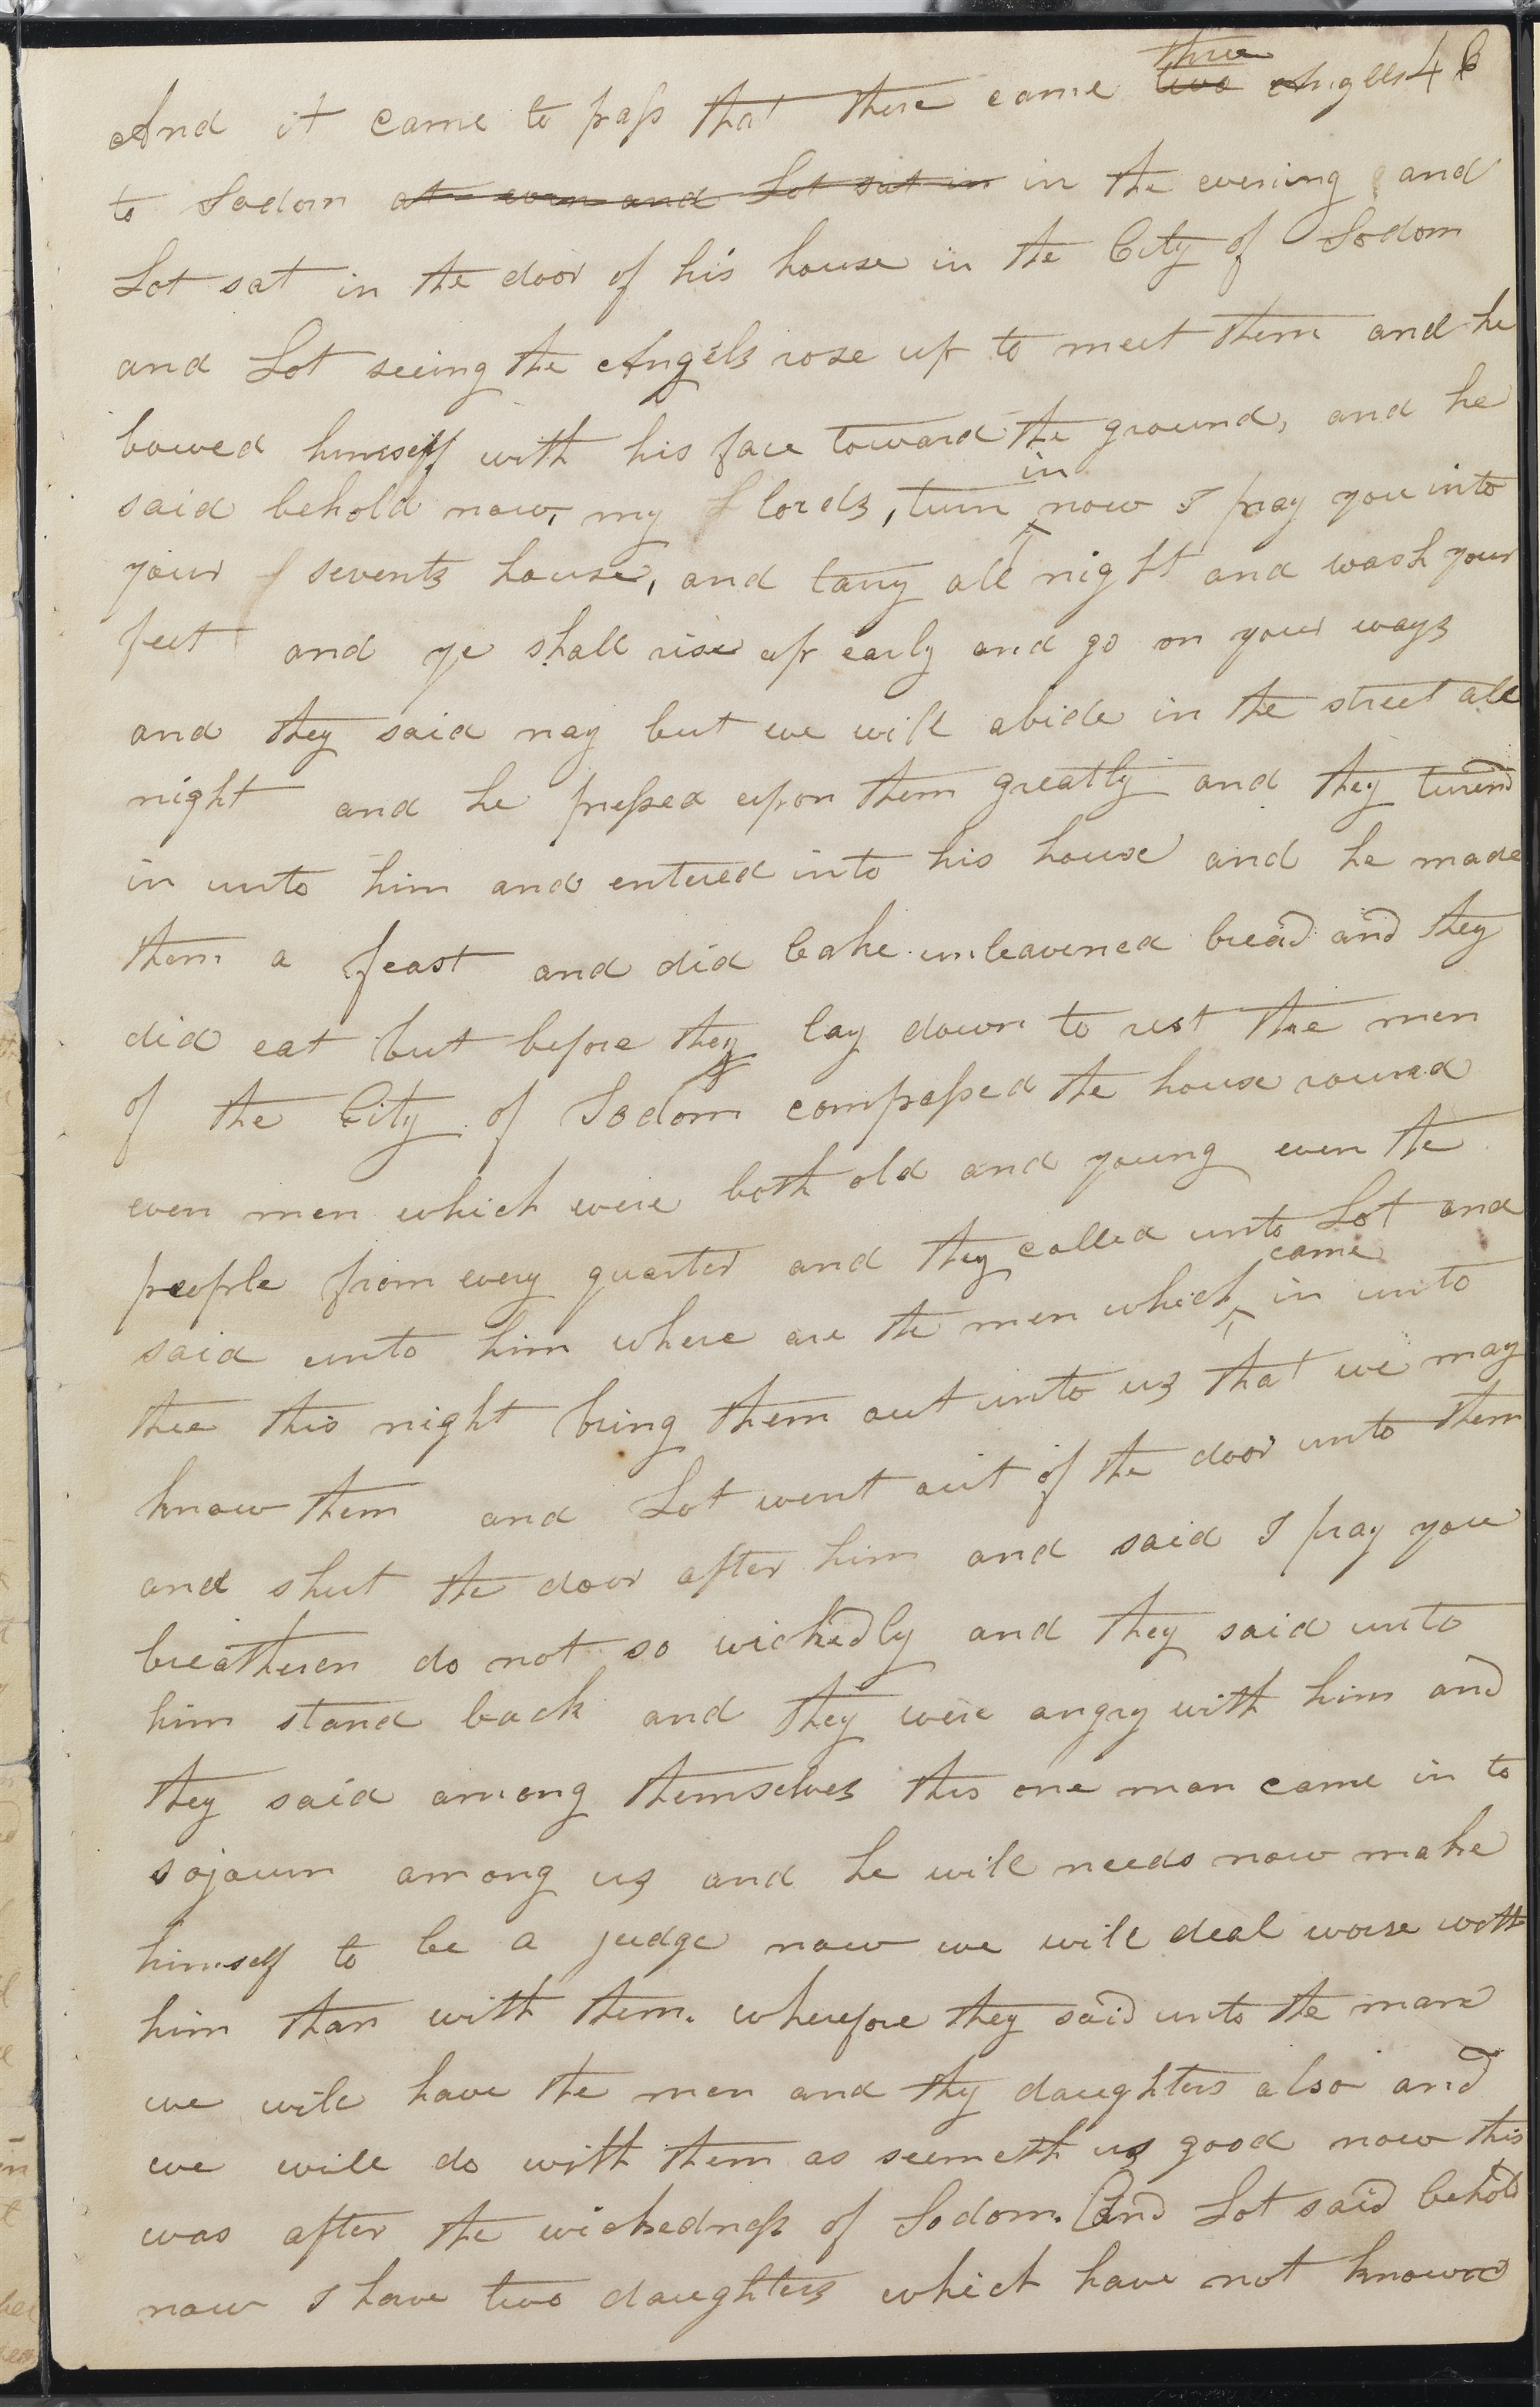 And it came to pass that there came two three Angels 46
to Sodom at even and Lot sat in in the evening and
Lot sat in the door of his house in the City of Sodom
and Lot seeing the Angels rose up to meet them and he
bowed himself with his face toward the ground, and he
said behold now, my lords, turn in now I pray you into
your sevents house, and tarry all night and wash your
feet and ye shall rise up early and go on your ways
and they said nay but we will abide in the street all
night and he pressed upon them greatly and they turnd
in unto him and entered into his house and he made
them a feast and did bake unleavened bread and they
did eat but before they lay down to rest the men
of the City of Sodom compassed the house round
even men which were both old and young even the
people from every quarter and they called unto Lot and
said unto him where are the men which came in unto
thee this night bring them out unto us that we may
know them and Lot went out of the door unto them
and shut the door after him and said I pray you
breatheren do not so wickedly and they said unto
him stand back and they were angry with him and
they said among themselves this one man came in to
sojourn among us and he will needs now make
himself to be a judge now we will deal worse with
him than with them. wherefore they said unto the man
we will have the men and thy daughters also and
we will do with them as seemeth us good now this
was after the wickedness of Sodom. And Lot said behold
now I have two daughters which have not known